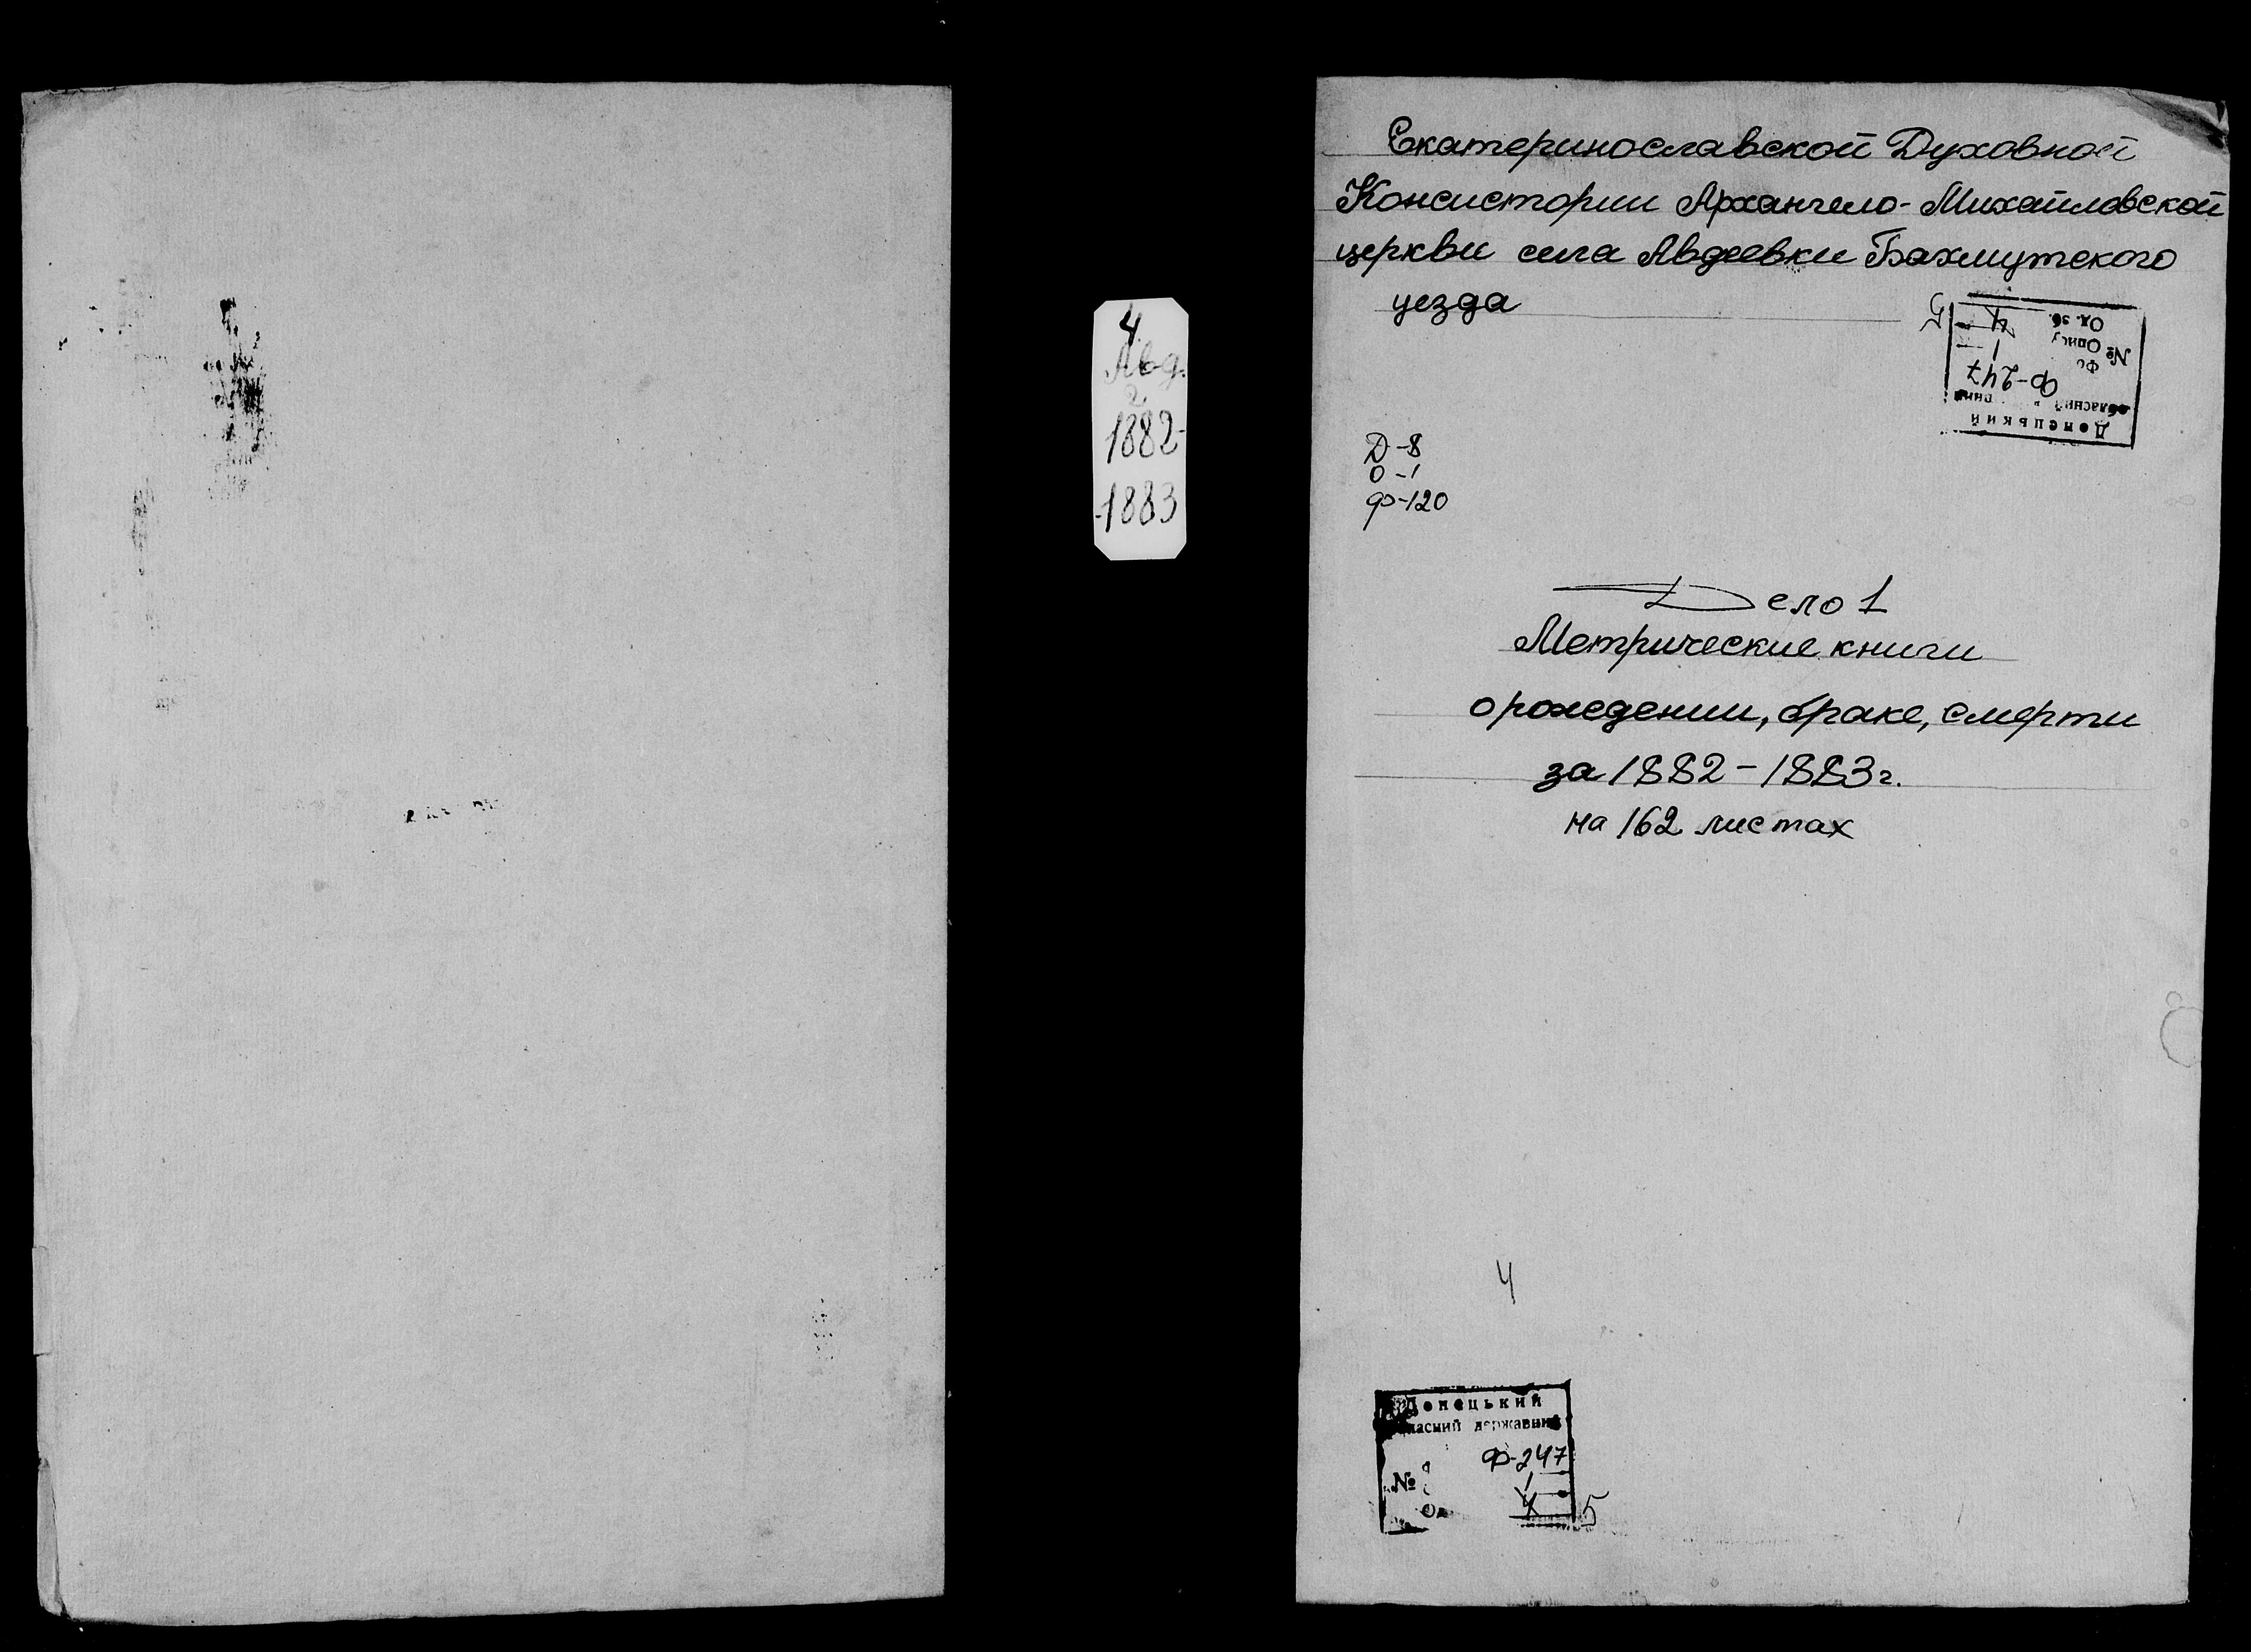 4
Авд.
2
1882-
-1883
Екатеринославской Духовной
Консистории Архангело-Михайловской
церкви села Авдеевки Бахмутского
уезда
Донецький
обласний
Ф-247
№ Опису 1
Од. зб. 4
5
Д-8
О-1
Ф-120
Дело 1
Метрические книги
о рождении, браке, смерти
за 1882-1883г.
на 162 листах
4
Донецький
державний
Ф-247
№ 1
4 5